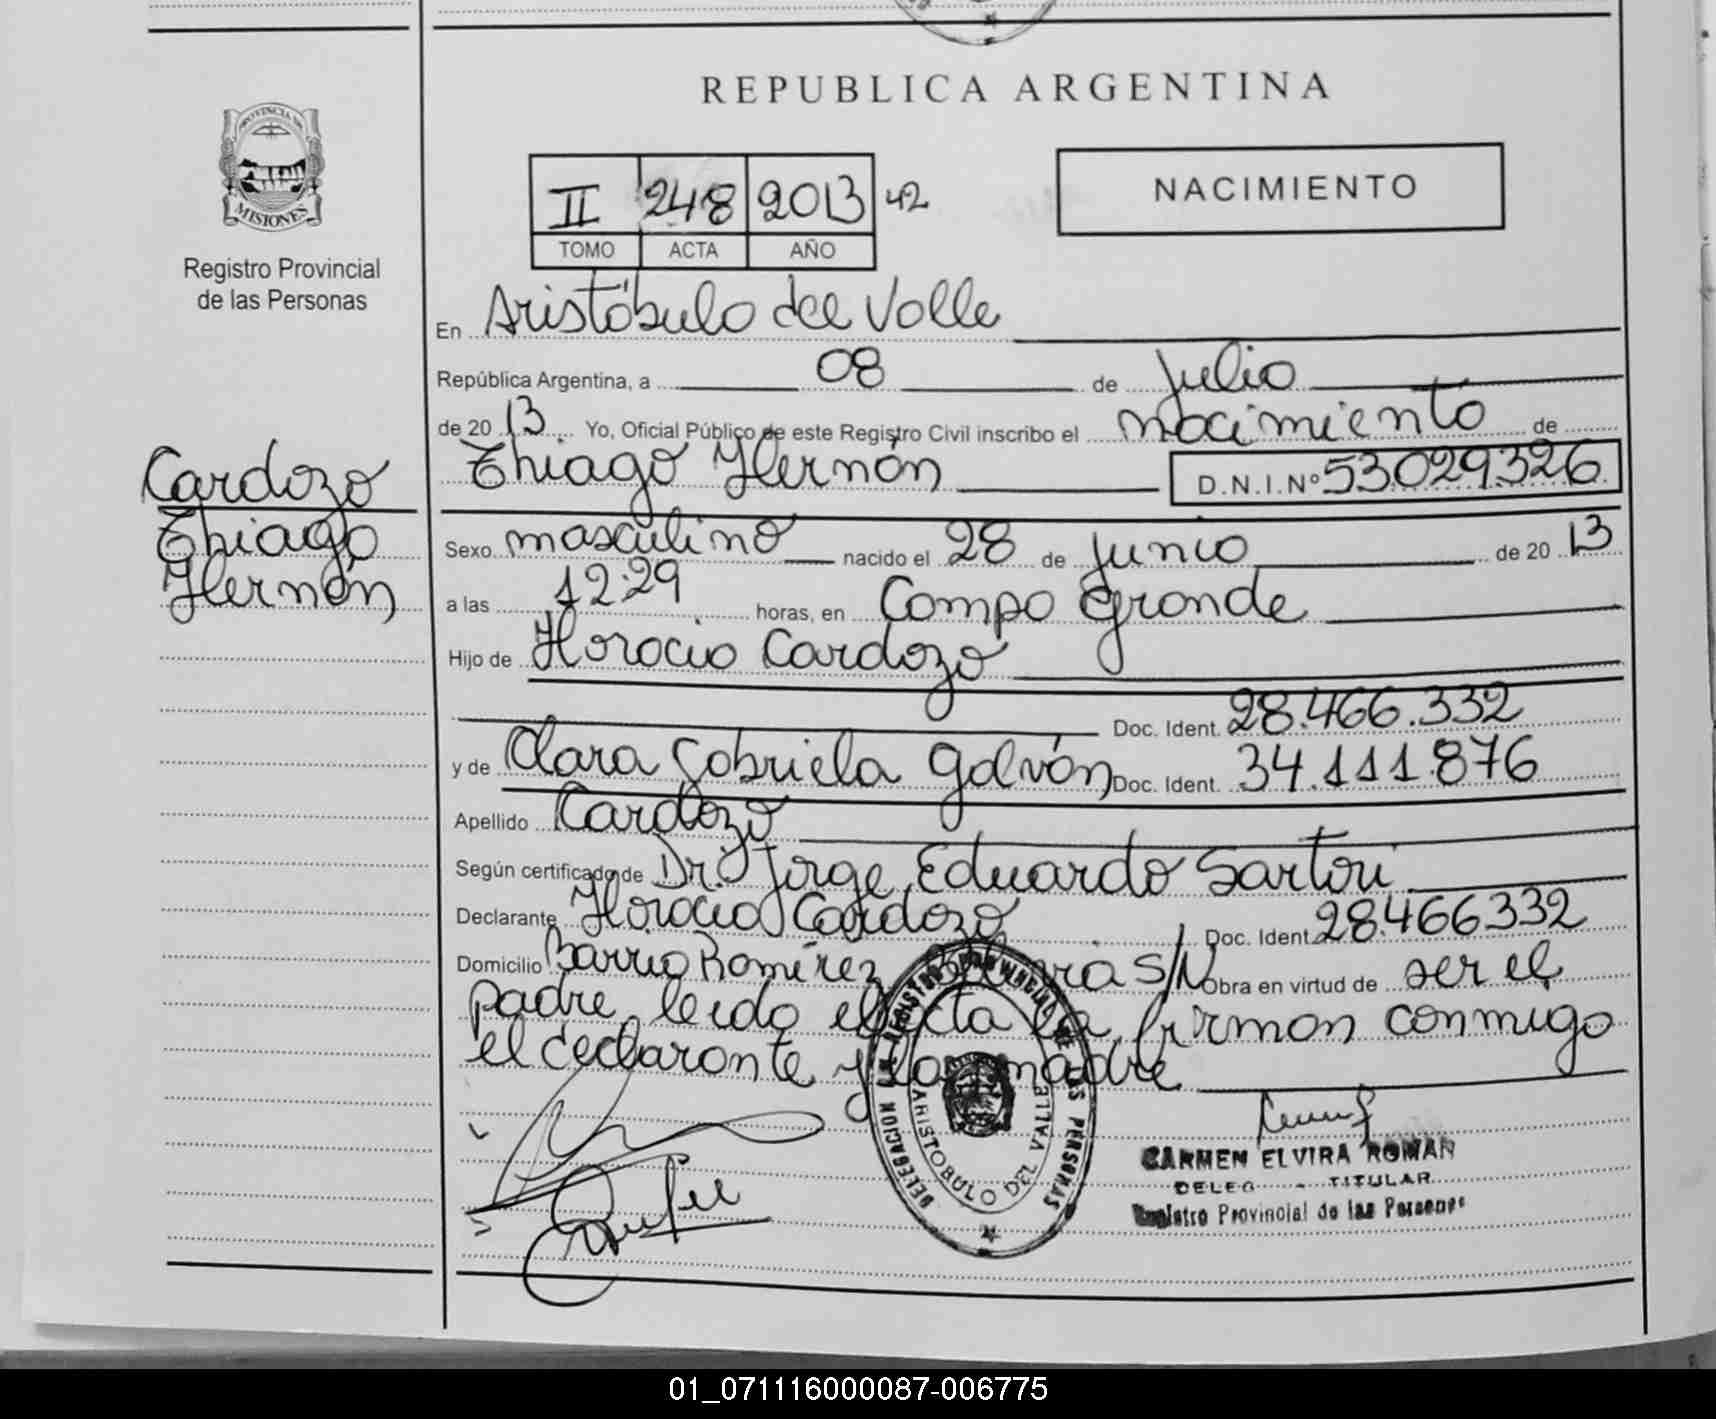 REPUBLICA ARGENTINA
PROVINCIA DE
MISIONES
Registro Provincial
de las Personas
II 248 2013 42
TOMO ACTA AÑO
NACIMIENTO
En Aristóbulo del Valle
República Argentina, a 08 de Julio
de 20 13 Yo, Oficial Público de este Registro Civil inscribo el nacimiento de
Cardozo
Thiago
Hernán
Thiago Hernán D.N.I.Nº 53.029.326
Sexo masculino nacido el 28 de Junio de 20 13
a las 12:29 horas, en Campo Grande
Hijo de Horacio Cardozo
Doc. Ident. 28.466.332
y de Clara Gabriela Galván Doc. Ident. 34.111.876
Apellido Cardozo
Según certificado de Dr. Jorge Eduardo Sartori
Declarante Horacio Cardozo Doc. Ident. 28.466332
Domicilio Barrio Ramírez S/N Obra en virtud de ser el
padre, leido el acta la firman conmigo
el declarante y la madre
DELEGACION REGISTRO PROVINCIAL DE LAS PERSONAS
ARISTOBULO DEL VALLE
CARMEN ELVIRA ROMAN
TITULAR
Registro Provincial de las Personas
01_071116000087-006775